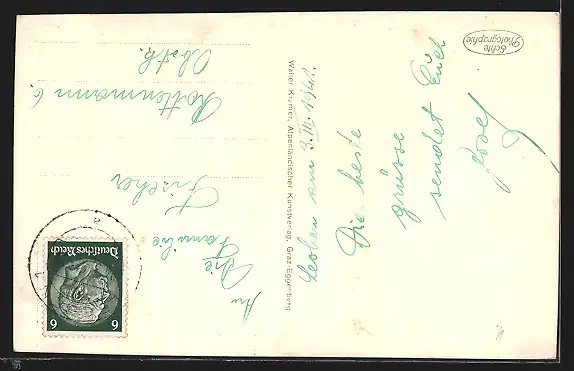 Echte
Photographie
Leoben am 3. III. 1941.
Die beste
grüsse
sendet Euch
Josef
Walter Kramer, Alpenländischer Kunstverlag, Graz-Eggenberg
An
Die
Familie
Fischer
Rottenmann 6
Obstk.
Deutsches Reich
6 6
a